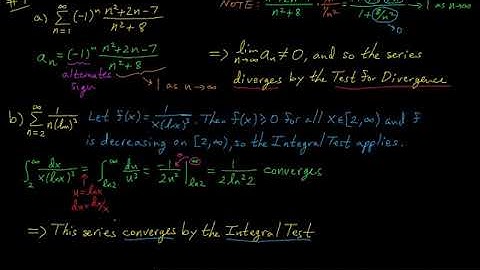 #1
NOTE:
a) ∑_{n=1}^{∞} (-1)^n (n²+2n-7)/(n²+8)
1 as n→∞
→0
a_n = (-1)^n (n²+2n-7)/(n²+8)
alternates sign
→1 as n→∞
⇒ lim_{n→∞} a_n ≠ 0, and so the series
diverges by the Test for Divergence
b) ∑_{n=2}^{∞} 1/(n(ln n)³) Let f(x) = 1/(x(lnx)³. Then f(x) ≥ 0 for all x∈[2,∞) and f
is decreasing on [2,∞), so the Integral Test applies.
∫_2^∞ dx/(x(lnx)³) = ∫_{ln2}^∞ du/u³ = -1/(2u²) |_{ln2}^∞ = 1/(2ln²2) converges
u=lnx
du=dx/x
⇒ This series converges by the Integral Test